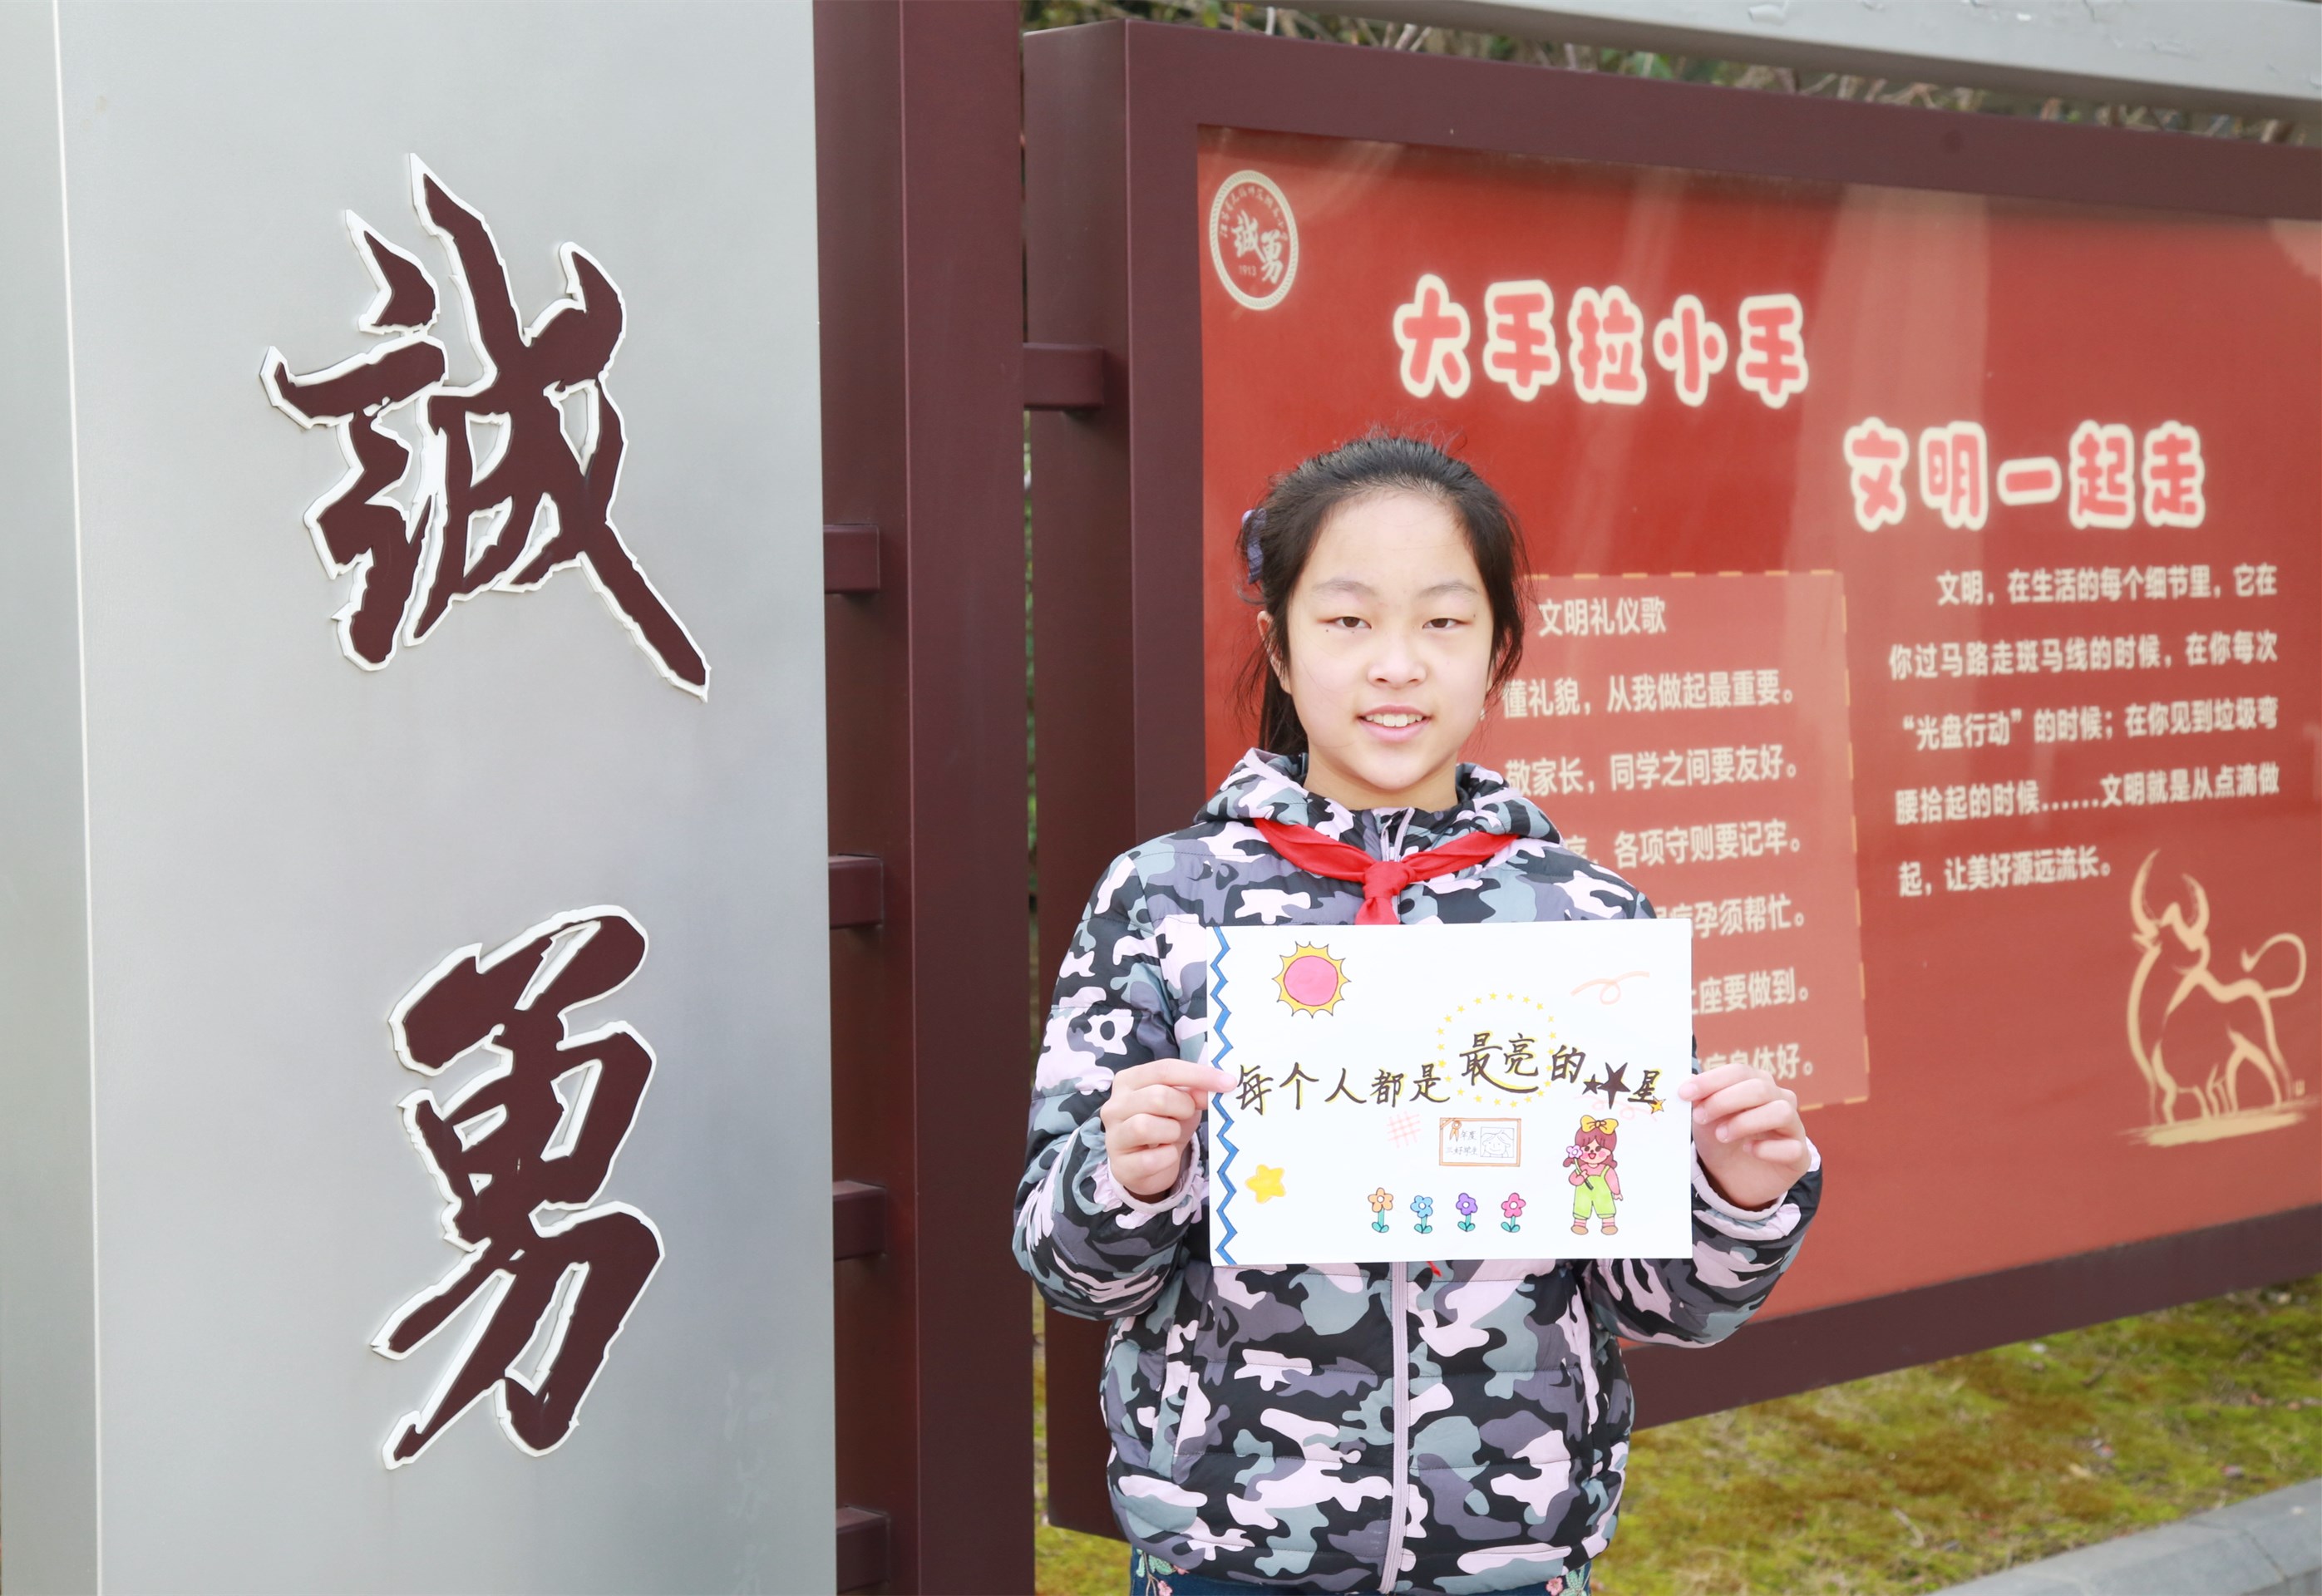 誠勇
誠勇
1913
大手拉小手
文明一起走
文明礼仪歌
懂礼貌，从我做起最重要。
敬家长，同学之间要友好。
，各项守则要记牢。
孕须帮忙。
座要做到。
身体好。
文明，在生活的每个细节里，它在
你过马路走斑马线的时候，在你每次
“光盘行动”的时候；在你见到垃圾弯
腰拾起的时候……文明就是从点滴做
起，让美好源远流长。
每个人都是最亮的星
三好学生